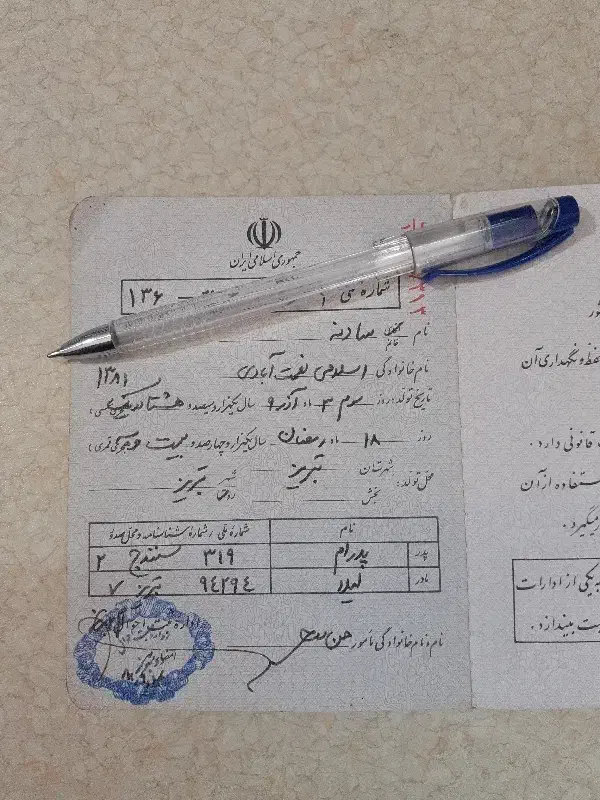 جمهوری اسلامی ایران
شماره سی ۱ — ۱۳۶
نام خانم
نام خانوادگی اسلامی نعمت آبادی
۱۳۸۱
تاریخ تولد: روز سوم ۳ ماه آذر ۹ سال یکهزار و سیصد و هشتاد و یک
روز ۱۸ ماه رمضان سال یکهزار و چهارصد و بیست و سه قمری
محل تولد: شهرستان تبریز شهر تبریز
بخش
نام شماره ملی / شماره شناسنامه و محل صدور
پدر پدرام ۳۱۹ سنندج ۲
مادر لیلا ۹۴۲۹۴ تبریز ۷
نام و نام خانوادگی مأمور
حفظ و نگهداری آن
قانونی دارد.
استفاده از آن
میگیرد.
به یکی از ادارات
بیندازد.